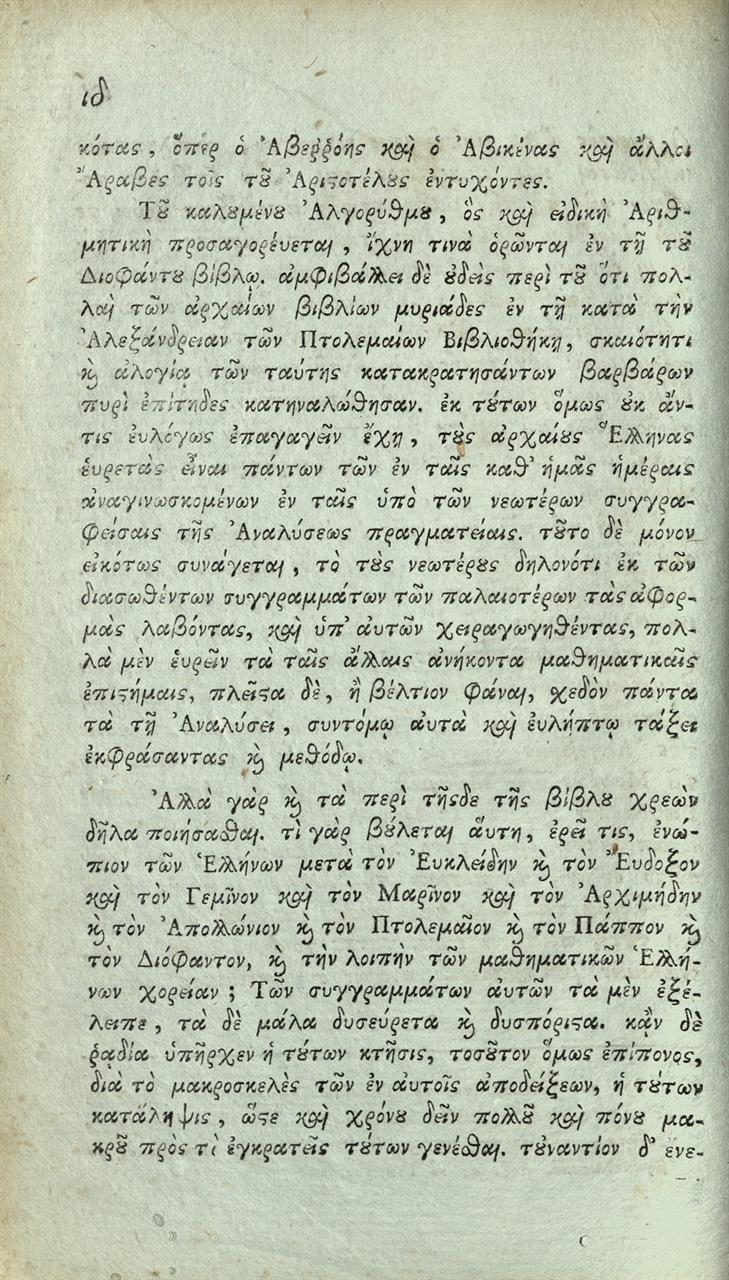 ιδ
κότας, ὅπερ ὁ Ἀβεῤῥόης καὶ ὁ Ἀβικένας καὶ ἄλλοι
Ἄραβες τοῖς τοῦ Ἀριστοτέλους ἐντυχόντες.
Τοῦ καλουμένου Ἀλγορύθμου, ὃς καὶ εἰδικὴ Ἀριθ-
μητικὴ προσαγορεύεται, ἴχνη τινὰ ὁρῶνται ἐν τῇ τοῦ
Διοφάντου βίβλῳ. ἀμφιβάλλει δὲ οὐδεὶς περὶ τοῦ ὅτι πολ-
λαὶ τῶν ἀρχαίων βιβλίων μυριάδες ἐν τῇ κατὰ τὴν
Ἀλεξάνδρειαν τῶν Πτολεμαίων Βιβλιοθήκῃ, σκαιότητι
καὶ ἀλογίᾳ τῶν ταύτης κατακρατησάντων βαρβάρων
πυρὶ ἐπίτηδες κατηναλώθησαν. ἐκ τούτων ὅμως οὐκ ἄν-
τις εὐλόγως ἐπαγαγεῖν ἔχῃ, τοὺς ἀρχαίους Ἕλληνας
εὑρετὰς εἶναι πάντων τῶν ἐν ταῖς καθ' ἡμᾶς ἡμέραις
ἀναγινωσκομένων ἐν ταῖς ὑπὸ τῶν νεωτέρων συγγρα-
φείσαις τῆς Ἀναλύσεως πραγματείαις. τοῦτο δὲ μόνον
εἰκότως συνάγεται, τὸ τοὺς νεωτέρους δηλονότι ἐκ τῶν
διασωθέντων συγγραμμάτων τῶν παλαιοτέρων τὰς ἀφορ-
μὰς λαβόντας, καὶ ὑπ' αὐτῶν χειραγωγηθέντας, πολ-
λὰ μὲν εὑρεῖν τὰ ταῖς ἄλλαις ἀνήκοντα μαθηματικαῖς
ἐπιστήμαις, πλεῖστα δὲ, ἢ βέλτιον φάναι, σχεδὸν πάντα
τὰ τῇ Ἀναλύσει, συντόμῳ αὐτὰ καὶ εὐλήπτῳ τάξει
ἐκφράσαντας καὶ μεθόδῳ.
Ἀλλὰ γὰρ καὶ τὰ περὶ τῆςδε τῆς βίβλου χρεὼν
δῆλα ποιήσασθαι. τὶ γὰρ βούλεται αὕτη, ἐρεῖ τις, ἐνώ-
πιον τῶν Ἑλλήνων μετὰ τὸν Εὐκλείδην καὶ τὸν Εὔδοξον
καὶ τὸν Γεμῖνον καὶ τὸν Μαρῖνον καὶ τὸν Ἀρχιμήδην
καὶ τὸν Ἀπολλώνιον καὶ τὸν Πτολεμαῖον καὶ τὸν Πάππον καὶ
τὸν Διόφαντον, καὶ τὴν λοιπὴν τῶν μαθηματικῶν Ἑλλή-
νων χορείαν; Τῶν συγγραμμάτων αὐτῶν τὰ μὲν ἐξέ-
λειπε, τὰ δὲ μάλα δυσεύρετα καὶ δυσπόριστα. κᾂν δὲ
ῥαδία ὑπῆρχεν ἡ τούτων κτῆσις, τοσοῦτον ὅμως ἐπίπονος,
διὰ τὸ μακροσκελὲς τῶν ἐν αὐτοῖς ἀποδείξεων, ἡ τούτων
κατάληψις, ὥστε καὶ χρόνου δεῖν πολλοῦ καὶ πόνου μα-
κροῦ πρὸς τὶ ἐγκρατεῖς τούτων γενέσθαι. τοὐναντίον δ' ἐνε-